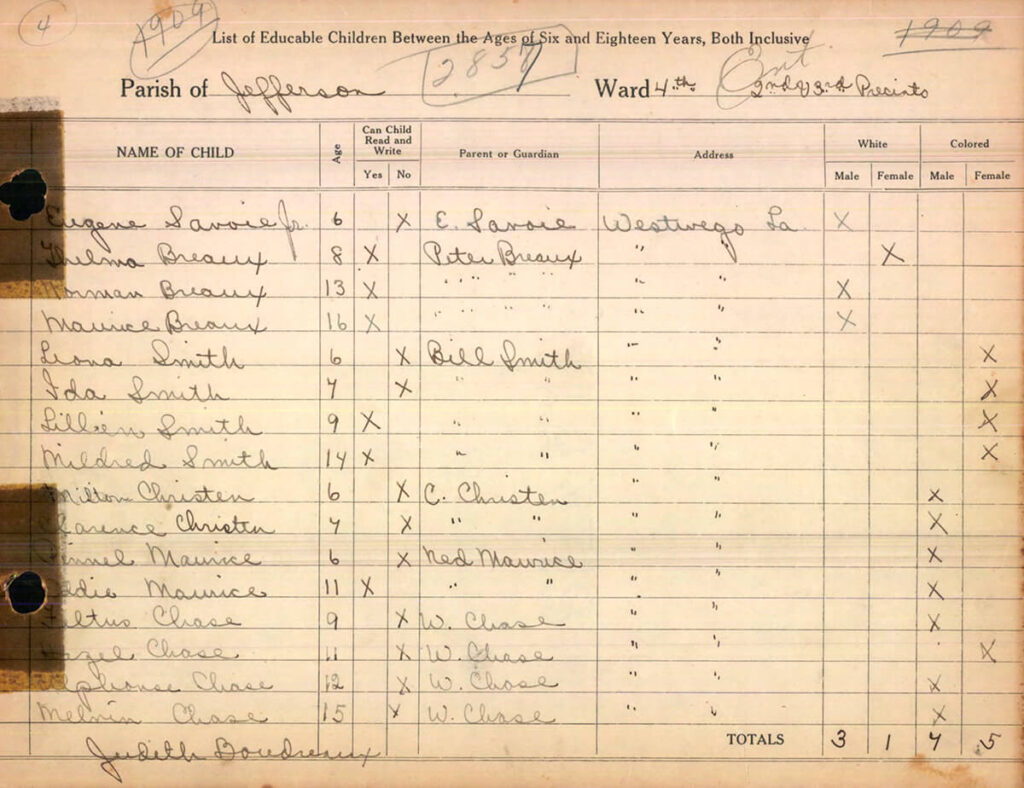 4 1909 List of Educable Children Between the Ages of Six and Eighteen Years, Both Inclusive 1909
2857
Parish of Jefferson Ward 4th Ent 2nd & 3rd Precints
NAME OF CHILD Age Can Child Read and Write Parent or Guardian Address White Colored
Yes No Male Female Male Female
Eugene Savoie Jr. 6 X E. Savoie Westwego La. X
Thelma Breaux 8 X Peter Breaux " " X
Norman Breaux 13 X " " " " " " X
Maurice Breaux 16 X " " " " " " X
Leona Smith 6 X Bill Smith " " X
Ida Smith 7 X " " " " X
Lillien Smith 9 X " " " " X
Mildred Smith 14 X " " " " X
Milton Christen 6 X C. Christen " " X
Clarence Christen 7 X " " " " X
Maurice 6 X Ned Maurice " " X
Eddie Maurice 11 X " " " " X
Feltus Chase 9 X W. Chase " " X
Hazel Chase 11 X W. Chase " " X
Alphonse Chase 12 X W. Chase " " X
Melvin Chase 15 X W. Chase " " X
Judith Boudreaux TOTALS 3 1 7 5